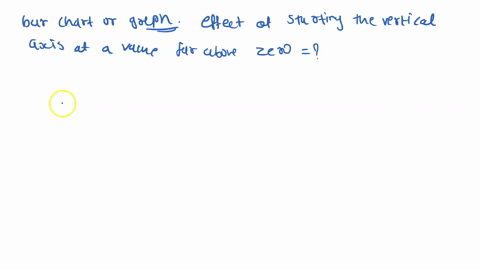 bar chart or graph. Effect of starting the vertical
axis at a value far above zero = ?